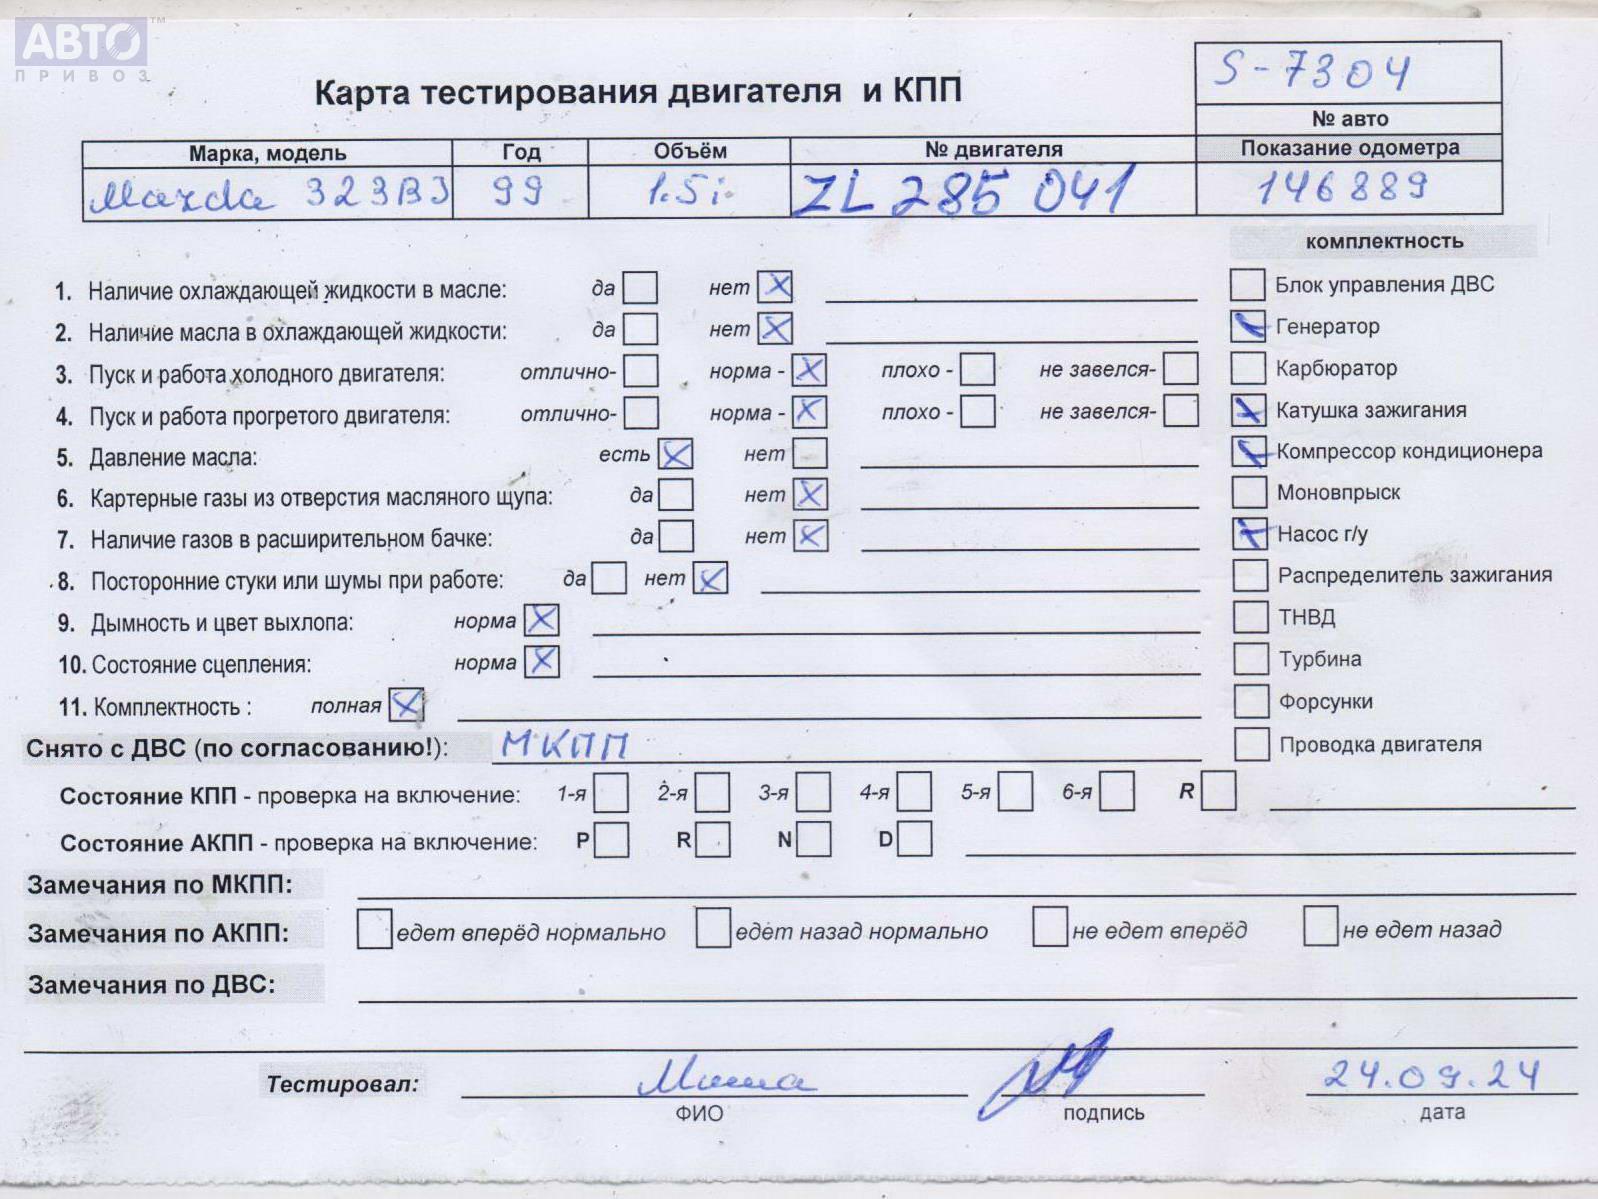 АВТО™
ПРИВОЗ
S-7304
Карта тестирования двигателя и КПП
№ авто
Марка, модель Год Объём № двигателя Показание одометра
Mazda 323BJ 99 1.5i ZL 285 041 146889
комплектность
1. Наличие охлаждающей жидкости в масле: да нет
Блок управления ДВС
2. Наличие масла в охлаждающей жидкости: да нет
Генератор
3. Пуск и работа холодного двигателя: отлично- норма - плохо - не завелся-
Карбюратор
4. Пуск и работа прогретого двигателя: отлично- норма - плохо - не завелся-
Катушка зажигания
5. Давление масла: есть нет
Компрессор кондиционера
6. Картерные газы из отверстия масляного щупа: да нет
Моновпрыск
7. Наличие газов в расширительном бачке: да нет
Насос г/у
8. Посторонние стуки или шумы при работе: да нет
Распределитель зажигания
9. Дымность и цвет выхлопа: норма
ТНВД
10. Состояние сцепления: норма
Турбина
11. Комплектность : полная
Форсунки
Снято с ДВС (по согласованию!): МКПП
Проводка двигателя
Состояние КПП - проверка на включение: 1-я 2-я 3-я 4-я 5-я 6-я R
Состояние АКПП - проверка на включение: P R N D
Замечания по МКПП:
Замечания по АКПП: едет вперёд нормально едет назад нормально не едет вперёд не едет назад
Замечания по ДВС:
Тестировал: Миша 24.09.24
ФИО подпись дата